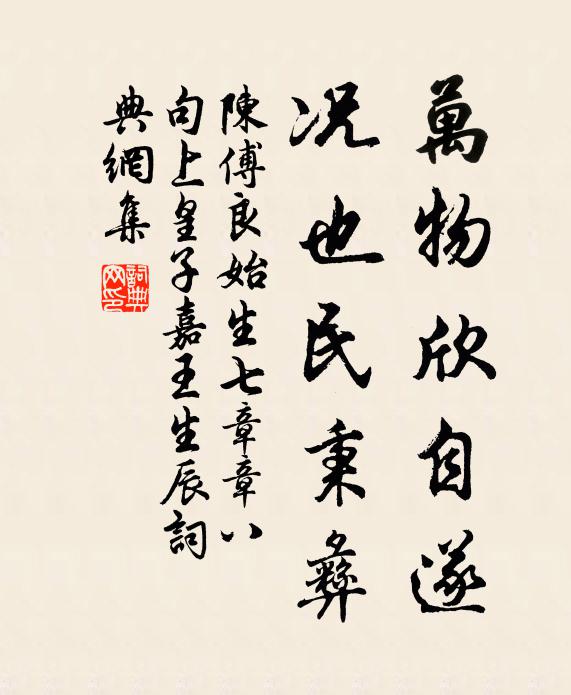 萬物欣自遂
况也民秉彝
陳傅良始生七章章八
句上皇子嘉王生辰詞
典網集
詞典網印